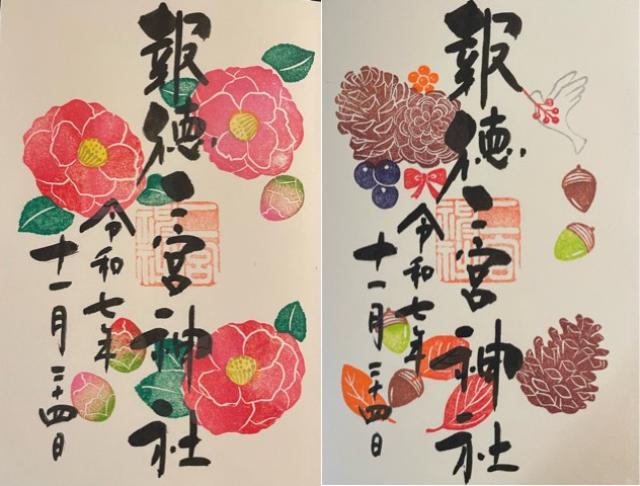 報徳二宮神社
令和七年
十一月二十四日
報徳二宮神社
令和七年
十一月二十四日